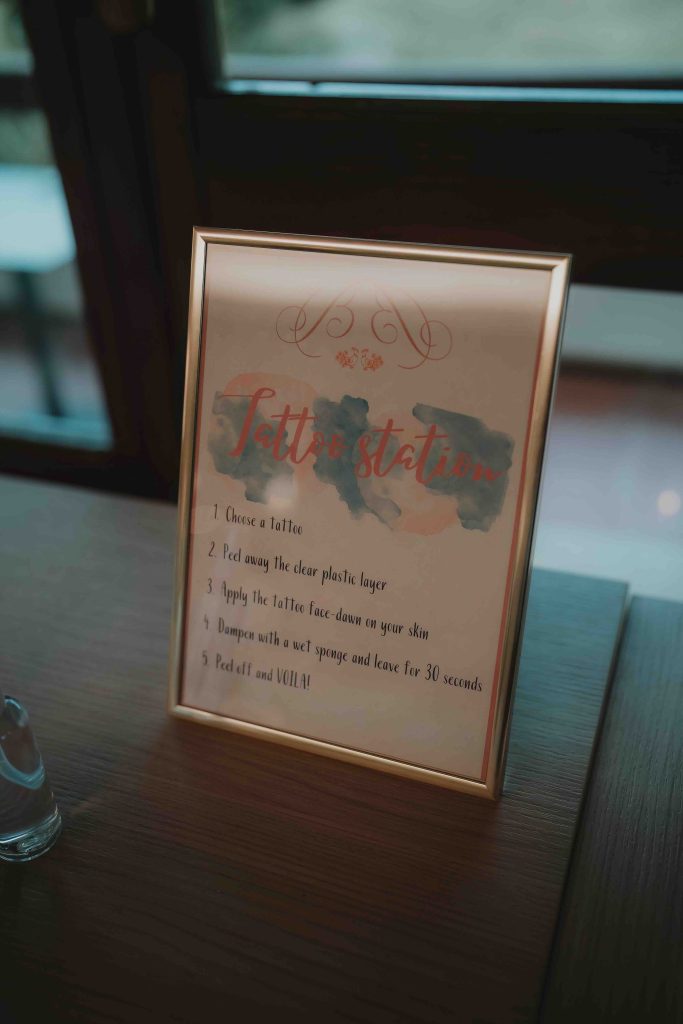 Tattoo station
1. Choose a tattoo
2. Peel away the clear plastic layer
3. Apply the tattoo face-dawn on your skin
4. Dampen with a wet sponge and leave for 30 seconds
5. Peel off and VOILA!